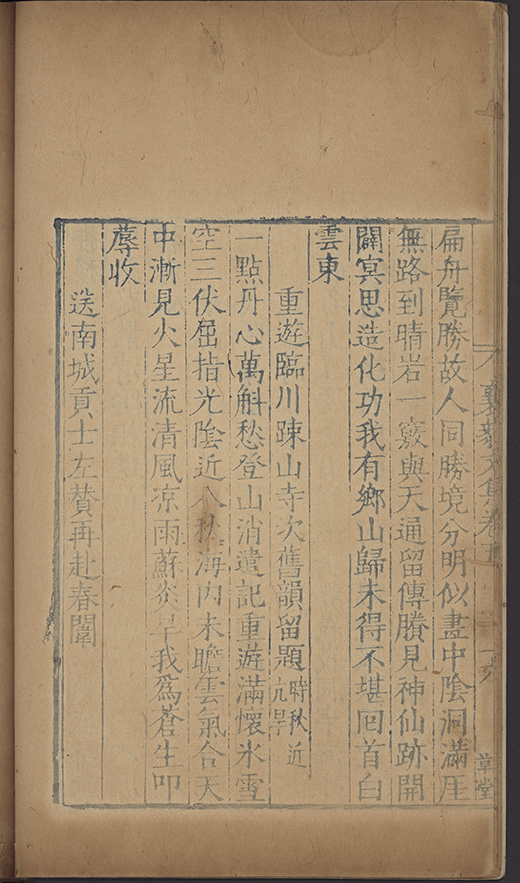 扁舟覽勝故人同勝境分明似畫中陰洞滿厓
無路到晴岩一竅與天通留傳賸見神仙跡開
闢冥思造化功我有鄉山歸未得不堪回首白
雲東
重遊臨川踈山寺次舊韻留題時秋近亢旱
一點丹心萬斛愁登山消遣記重遊滿懷氷雪
空三伏屈指光陰近入秋海內未瞻雲氣合天
中漸見火星流清風凉雨蘇炎旱我爲蒼生叩
蓐收
送南城貢士左賛再赴春闈
襄毅文集卷
草堂